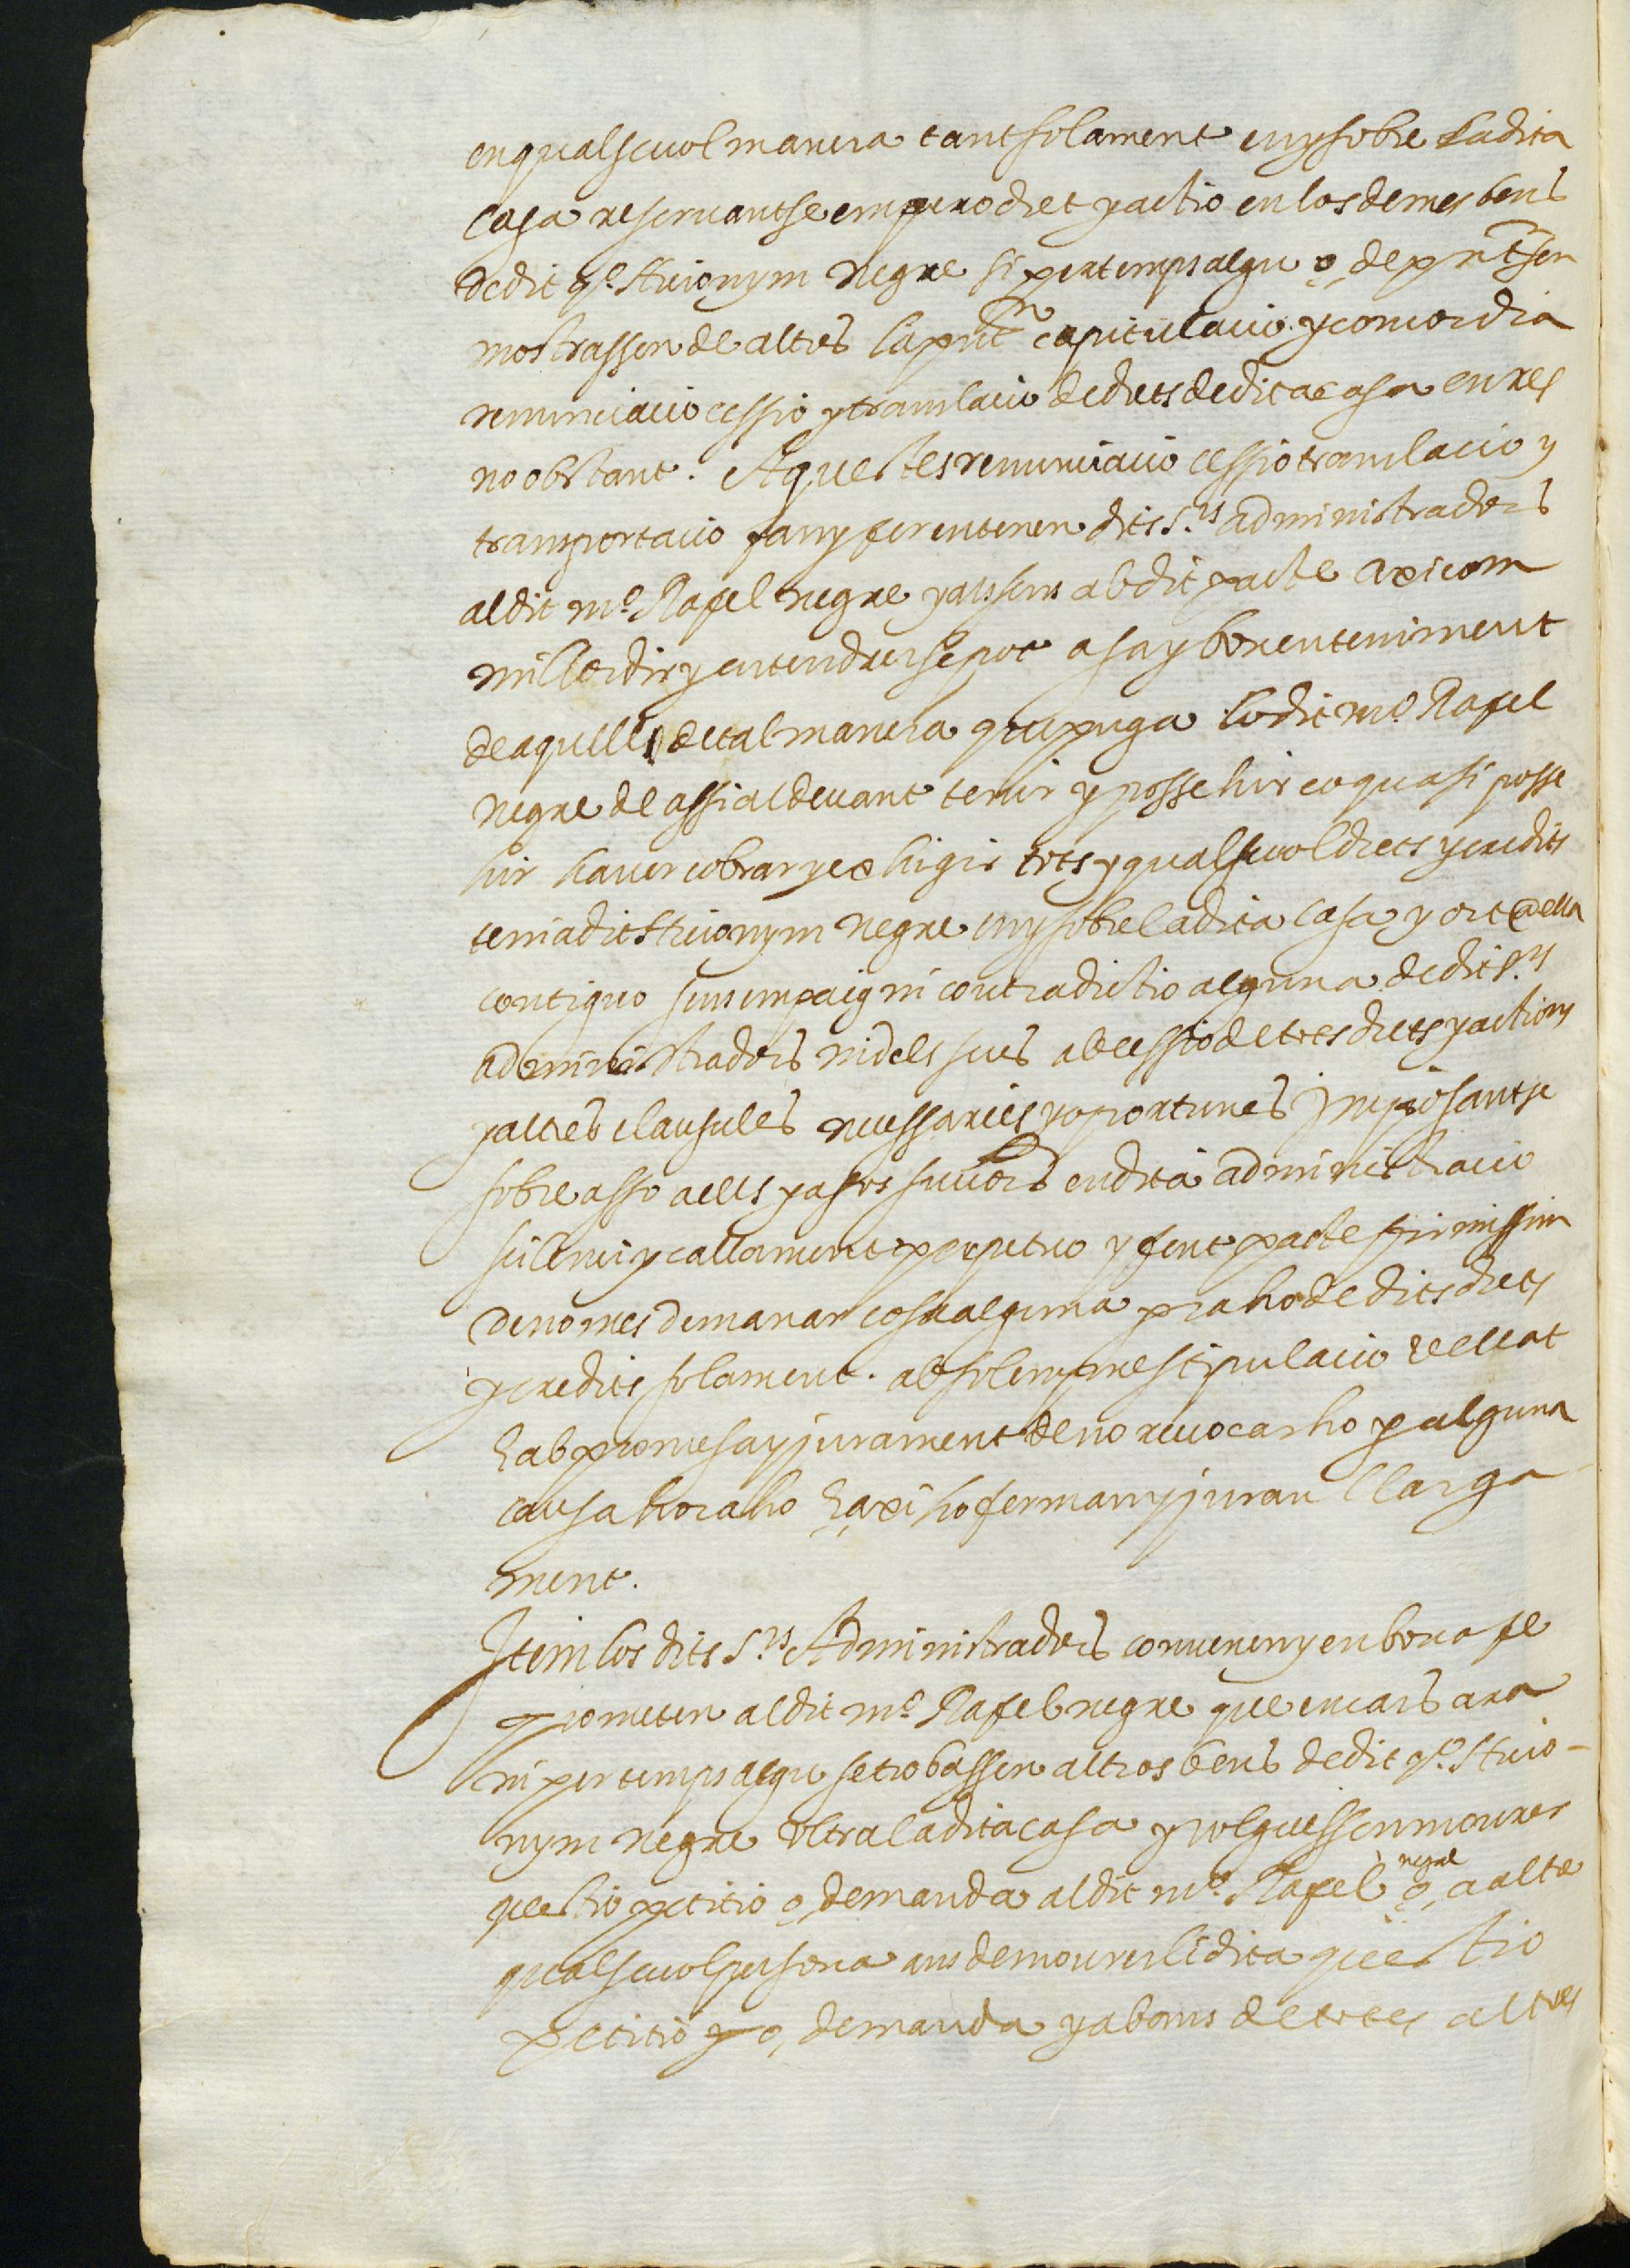 en qualsevol manera tant solament en y sobre la dita
casa reservantse empero dret y actio en los demes bens
de dit qº. Hieronym Negre si per temps algu o, de pnt sen
mostrassen de altres la pnt capitulacio y concordia
renunciacio cessio y translacio de drets de dita casa en res
no obstant. Aquestes renunciacio cessio translacio y
transportacio fan y fer entenen dits S.rs administradors
al dit mº. Rafel Negre y als seus ab dit pacte axi com
millor dir y entendrer se pot a sa y bon enteniment
de aquells de tal manera que puga lo dit mº. Rafel
Negre de assi al devant tenir y possehir e o quasi posse
hir haver cobrar y exhigir tots y qualsevol drets y credits
tenia dit Hieronym Negre en y sobre la dita casa y ort @ ella
contiguo sens empaig ni contradictio alguna de dit S.rs
administradors ni dels seus ab cessio de tots drets y actions
y altres clausules necessaries y oportunes Imposantse
sobre asso a ells y a sos successors en dita administracio
silenci y callament perpetuo y fent pacte firmissim
de no mes demanar cosa alguna p raho de dits drets
y credits solament. ab solempne stipulacio vellat
E ab promesa y jurament de no revocarho p alguna
causa ho raho E axi ho ferman y juran llarga
ment.
Item los dits S.rs Administradors convenen y en bona fe
prometen al dit mº. Rafel Negre que en cars ara
ni per temps algu se trobassen altros bens de dit qº. Hiero-
nym Negre ultra la dita casa y volguessen mourer
questio petitio o, demanda al dit mº. Rafel negre o, a altre
qualsevol persona ans de mourerli dita questio
petitio y o, demanda y abans de totes altres